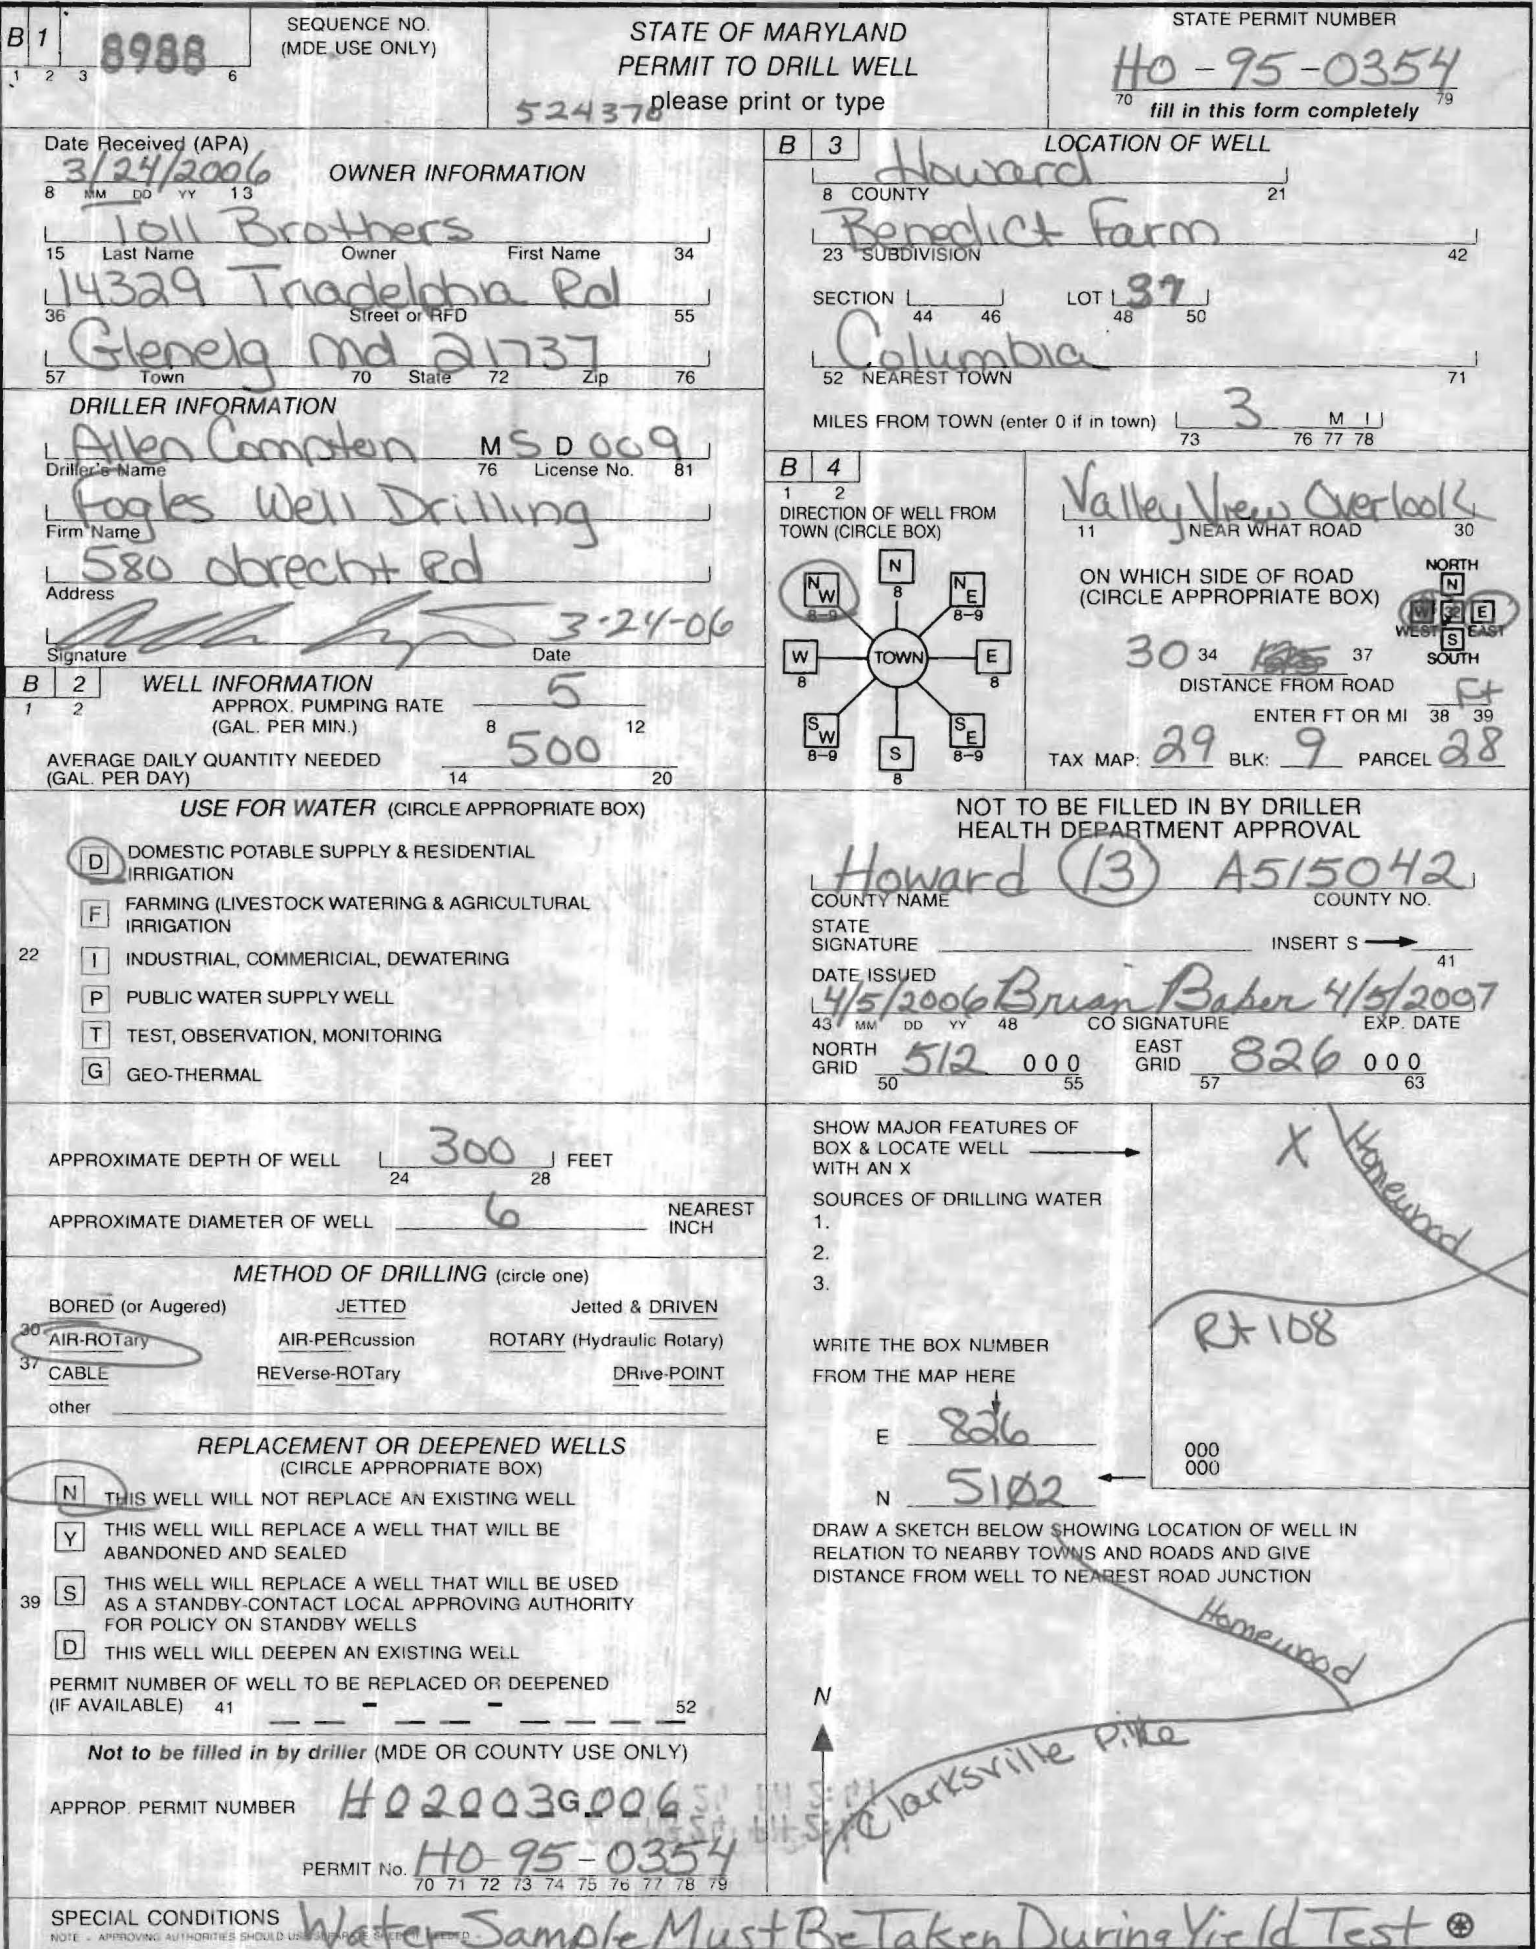 B 1
8988
1 2 3 6
SEQUENCE NO.
(MDE USE ONLY)
STATE OF MARYLAND
PERMIT TO DRILL WELL
please print or type
524378
STATE PERMIT NUMBER
HO-95-0354
70 79
fill in this form completely
Date Received (APA)
3/24/2006
8 MM DD YY 13
OWNER INFORMATION
Toll Brothers
15 Last Name Owner First Name 34
14329 Triadelphia Rd
36 Street or RFD 55
Glenelg Md 21737
57 Town 70 State 72 Zip 76
DRILLER INFORMATION
Allen Compton M S D 009
Driller's Name 76 License No. 81
Fogles Well Drilling
Firm Name
580 Obrecht Rd
Address
3-24-06
Signature Date
B 2 WELL INFORMATION
1 2
APPROX. PUMPING RATE 5
(GAL. PER MIN.) 8 12
AVERAGE DAILY QUANTITY NEEDED 500
(GAL. PER DAY) 14 20
USE FOR WATER (CIRCLE APPROPRIATE BOX)
D DOMESTIC POTABLE SUPPLY & RESIDENTIAL
IRRIGATION
F FARMING (LIVESTOCK WATERING & AGRICULTURAL
IRRIGATION
22 I INDUSTRIAL, COMMERICIAL, DEWATERING
P PUBLIC WATER SUPPLY WELL
T TEST, OBSERVATION, MONITORING
G GEO-THERMAL
APPROXIMATE DEPTH OF WELL 300 FEET
24 28
APPROXIMATE DIAMETER OF WELL 6 NEAREST
INCH
METHOD OF DRILLING (circle one)
BORED (or Augered) JETTED Jetted & DRIVEN
30 AIR-ROTary AIR-PERcussion ROTARY (Hydraulic Rotary)
37 CABLE REVerse-ROTary DRive-POINT
other
REPLACEMENT OR DEEPENED WELLS
(CIRCLE APPROPRIATE BOX)
N THIS WELL WILL NOT REPLACE AN EXISTING WELL
Y THIS WELL WILL REPLACE A WELL THAT WILL BE
ABANDONED AND SEALED
39 S THIS WELL WILL REPLACE A WELL THAT WILL BE USED
AS A STANDBY-CONTACT LOCAL APPROVING AUTHORITY
FOR POLICY ON STANDBY WELLS
D THIS WELL WILL DEEPEN AN EXISTING WELL
PERMIT NUMBER OF WELL TO BE REPLACED OR DEEPENED
(IF AVAILABLE) 41 - - 52
Not to be filled in by driller (MDE OR COUNTY USE ONLY)
APPROP. PERMIT NUMBER HO2003G006
PERMIT No. HO-95-0354
70 71 72 73 74 75 76 77 78 79
B 3 LOCATION OF WELL
Howard
8 COUNTY 21
Benedict Farm
23 SUBDIVISION 42
SECTION LOT 37
44 46 48 50
Columbia
52 NEAREST TOWN 71
MILES FROM TOWN (enter 0 if in town) 3 M I
73 76 77 78
B 4
1 2
DIRECTION OF WELL FROM
TOWN (CIRCLE BOX)
N
8
NW NE
8-9 8-9
W TOWN E
8 8
SW SE
8-9 8-9
S
8
Valley View Overlook
11 NEAR WHAT ROAD 30
ON WHICH SIDE OF ROAD
(CIRCLE APPROPRIATE BOX)
NORTH
N
W 32 E
WEST EAST
S
SOUTH
30 34 37
DISTANCE FROM ROAD
ENTER FT OR MI Ft
38 39
TAX MAP: 29 BLK: 9 PARCEL 28
NOT TO BE FILLED IN BY DRILLER
HEALTH DEPARTMENT APPROVAL
Howard 13 A515042
COUNTY NAME COUNTY NO.
STATE
SIGNATURE INSERT S
41
DATE ISSUED
4/5/2006 Brian Baker 4/5/2007
43 MM DD YY 48 CO SIGNATURE EXP. DATE
NORTH
GRID 512 000
50 55
EAST
GRID 826 000
57 63
SHOW MAJOR FEATURES OF
BOX & LOCATE WELL
WITH AN X
SOURCES OF DRILLING WATER
1.
2.
3.
WRITE THE BOX NUMBER
FROM THE MAP HERE
E 826
N 5102
X
Homewood
Rt 108
000
000
DRAW A SKETCH BELOW SHOWING LOCATION OF WELL IN
RELATION TO NEARBY TOWNS AND ROADS AND GIVE
DISTANCE FROM WELL TO NEAREST ROAD JUNCTION
Homewood
N
Clarksville Pike
SPECIAL CONDITIONS Water Sample Must Be Taken During Yield Test
NOTE - APPROVING AUTHORITIES SHOULD USE SEPARATE SHEET IF NEEDED -